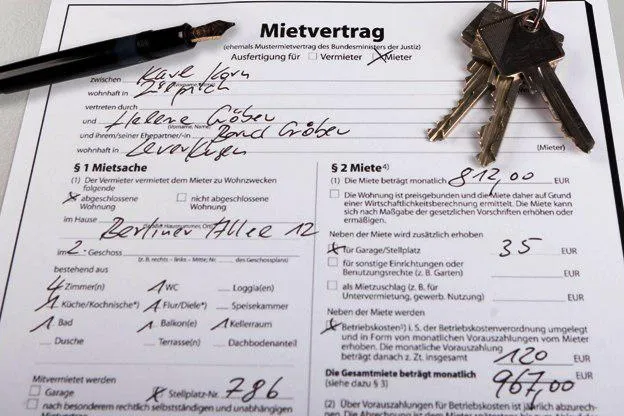 Mietvertrag
(ehemals Mustermietvertrag des Bundesministers der Justiz)
Ausfertigung für ☐ Vermieter ☒ Mieter
zwischen Karl Korn
wohnhaft in Zülpich
vertreten durch
und Helene Gröber
(Vorname, Name)
und ihrem/seiner Ehepartner/-in Bernd Gröber
wohnhaft in Leverkusen (Mieter)
§ 1 Mietsache
(1) Der Vermieter vermietet dem Mieter zu Wohnzwecken
folgende
☒ abgeschlossene Wohnung ☐ nicht abgeschlossene Wohnung
im Hause Berliner Allee 12
im 2. Geschoss
(z. B. rechts – links – Mitte; Nr. des Geschoßplans)
bestehend aus
4 Zimmer(n) 1 WC Loggia(en)
1 Küche/Kochnische*) 1 Flur/Diele*) Speisekammer
1 Bad 1 Balkon(e) 1 Kellerraum
Dusche Terrasse(n) Dachbodenanteil
Mitvermietet werden
☐ Garage ☒ Stellplatz-Nr. 786
☐ nach besonderem rechtlich selbstständigen und unabhängigen
§ 2 Miete⁴)
(1) Die Miete beträgt monatlich 812,00 EUR
☐ Die Wohnung ist preisgebunden und die Miete daher auf Grund
einer Wirtschaftlichkeitsberechnung ermittelt. Die Miete kann
sich nach Maßgabe der gesetzlichen Vorschriften erhöhen oder
ermäßigen.
Neben der Miete wird zusätzlich erhoben
☒ für Garage/Stellplatz 35 EUR
☐ für sonstige Einrichtungen oder
Benutzungsrechte (z. B. Garten) EUR
☐ als Mietzuschlag (z. B. für
Untervermietung, gewerb. Nutzung) EUR
Neben der Miete werden
☒ Betriebskosten⁵) i. S. der Betriebskostenverordnung umgelegt
und in Form von monatlichen Vorauszahlungen vom Mieter
erhoben. Die monatliche Vorauszahlung
beträgt danach z. Zt. insgesamt 120 EUR
Die Gesamtmiete beträgt monatlich 967,00 EUR
(siehe dazu § 3)
(2) Über Vorauszahlungen für Betriebskosten ist jährlich abzurech-